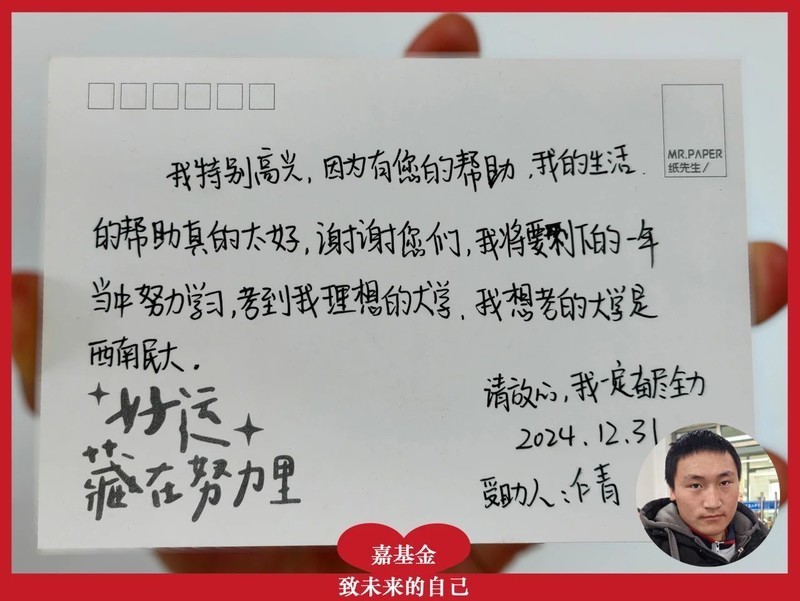 MR.PAPER
纸先生/
我特别高兴，因为有您的帮助，我的生活
的帮助真的太好，谢谢您们，我将要剩下的一年
当中努力学习，考到我理想的大学，我想考的大学是
西南民大。
请放心，我一定奋尽全力
2024.12.31
受助人：乍青
好运
藏在努力里
嘉基金
致未来的自己